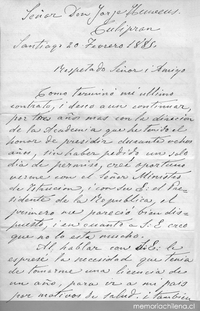 Señor Don Jorge Huneeus
Culipran
Santiago 20 Febrero 1885.
Respetado Señor i Amigo
Como terminó mi último
contrato, i deseo aun continuar
por tres años mas con la direccion
de la Academia que he tenido el
honor de presidir durante ocho
años, sin haber pedido un solo
dia de permiso, creí oportuno
verme con el Señor Ministro
de Instruccion, i con S. E. el Pre-
sidente de la Republica, el
primero me pareció bien dis-
puesto, i en cuanto a S. E. creo
que no lo está mucho.
Al hablar con S. E. le
espresé la necesidad que tenia
de tomarme una licencia de
un año, para ir a mi pais
por motivos de salud, i tambien
memoriachilena.cl